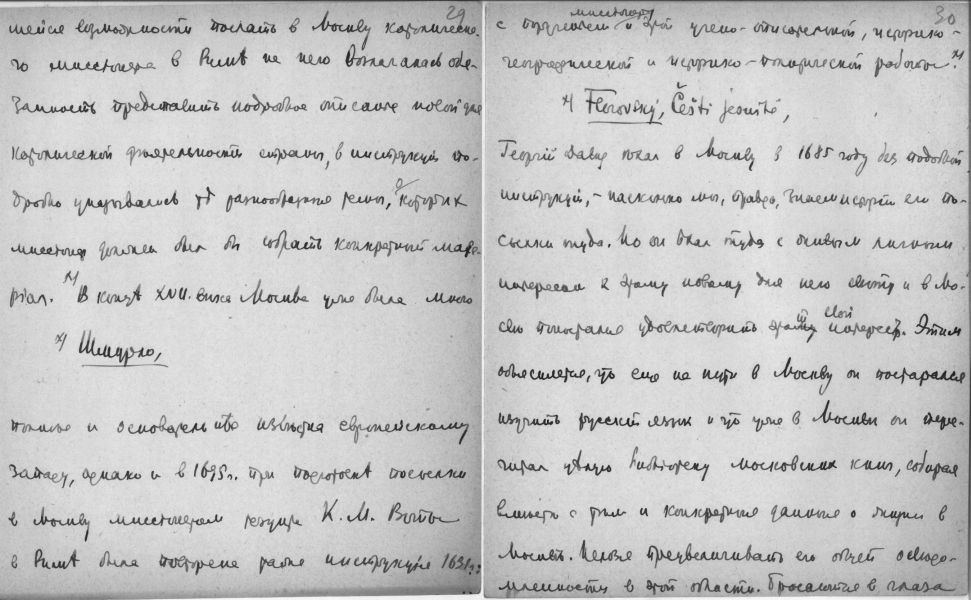 29
шейся возможности послать в Москву католическо-
го миссионера в Римѣ на него возлагалась обя-
занность представить подробное описание новой для
католической дѣятельности страны, в инструкции по-
дробно указывались разнообразные темы, о которых
миссионер должен был бы собрать конкретный мате-
риал. х) В концѣ XVII. вѣка Москва уже была много
х) Шмурло,
полнее и основательнѣе извѣстна европейскому
Западу, однако и в 1695 г. при подготовкѣ посылки
в Москву миссионером иезуита К. М. Воты
в Римѣ была повторена ранее инструкция 1631 г.:
30
с поручением миссионеру и этой учено-описательной, историко-
географической и историко-политической работы. х)
х) Florovský, Čeští jesuité,
Георгий Давид ехал в Москву в 1685 году без подобной
инструкции, – насколько мы, правда, знаем историю его по-
сылки туда. Но он ехал туда с живым личным
интересом к этому новому для него свѣту и в Мо-
скве постарался удовлетворить этот свой интерес. Этим
объясняется, что еще на пути в Москву он постарался
изучить русский язык и что уже в Москвѣ он пере-
читал цѣлую библиотеку московских книг, собирая
вмѣстѣ с тѣм и конкретные данные о жизни в
Москвѣ. Нельзя преувеличивать его общей освѣдо-
мленности в этой области. Бросаются в глаза